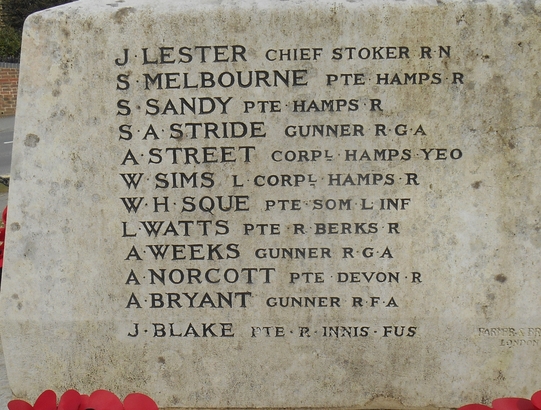 J·LESTER CHIEF STOKER R·N
S·MELBOURNE PTE·HAMPS·R
S·SANDY PTE·HAMPS·R
S·A·STRIDE GUNNER R·G·A
A·STREET CORPL HAMPS·YEO
W·SIMS L·CORPL HAMPS·R
W·H·SQUE PTE·SOM·L·INF
L·WATTS PTE·R·BERKS·R
A·WEEKS GUNNER R·G·A
A·NORCOTT PTE·DEVON·R
A·BRYANT GUNNER R·F·A
J·BLAKE PTE·R·INNIS·FUS
LONDON